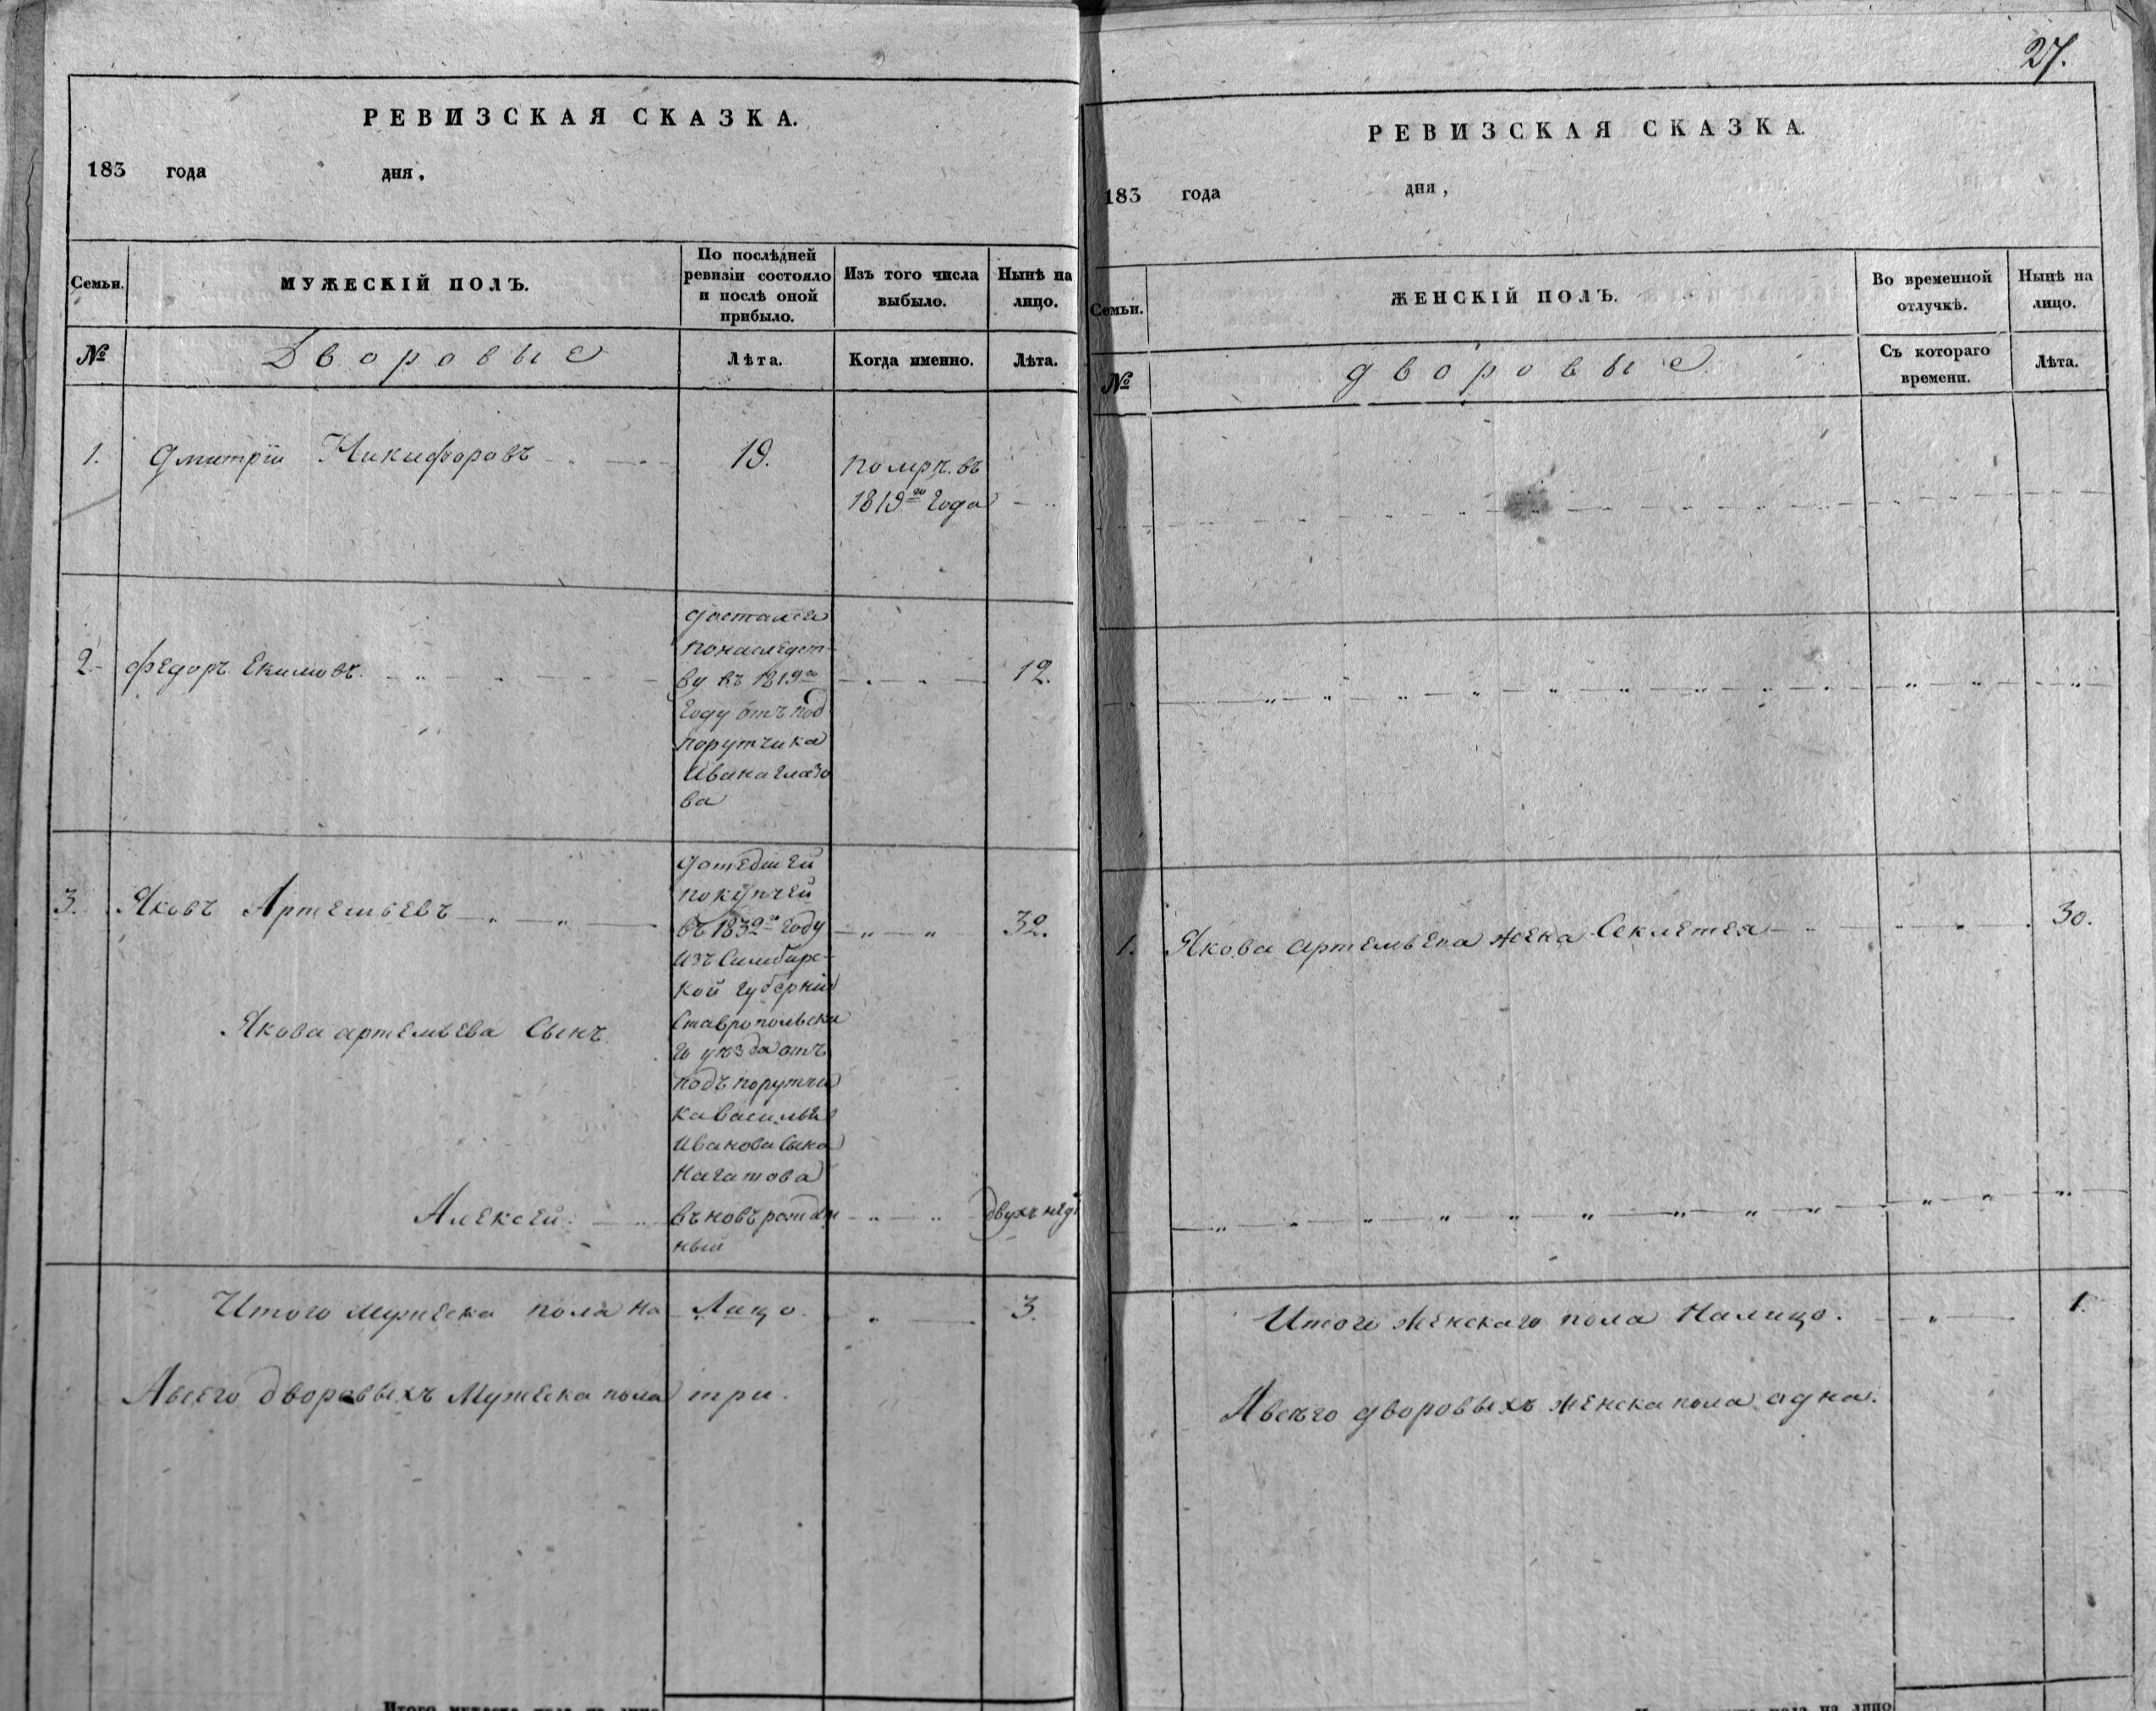 РЕВИЗСКАЯ СКАЗКА.
183 года дня,
Семьи.
МУЖЕСКІЙ ПОЛЪ.
По послѣдней
ревизіи состояло
и послѣ оной
прибыло.
Изъ того числа
выбыло.
Нынѣ на
лицо.
№
Дворовые
Лѣта.
Когда именно.
Лѣта.
1. Дмитрій Никифоровъ 19.
помрѣ. въ
1819го Года
2. Федоръ Екимовъ. 12.
достался
понаследст-
ву въ 1819го
Году отъ под
порутчика
Ивана Глазо
ва
3. Яковъ Артемьевъ 32.
дошедшей
покупчей
въ 1832го Году
изъ Симбирс-
кой губерніи
Ставропольска
го уѣзда отъ
подъпорутчи
ка Василья
Иванова Сына
Нагаткова
Якова артемьева Сынъ
Алексей
въновърожден
ный
двухъ нед
Итого мужеска пола на Лицо. 3.
Авсего дворовыхъ Мужеска пола три.
27.
РЕВИЗСКАЯ СКАЗКА.
183 года дня,
Семьи.
ЖЕНСКІЙ ПОЛЪ.
Во временной
отлучкѣ.
Нынѣ на
лицо.
№
дворовые.
Съ котораго
времени.
Лѣта.
1. Якова артемьева жена Секлетея 30.
Итого женскаго пола Налицо. 1.
Авсего дворовыхъ женска пола адна.